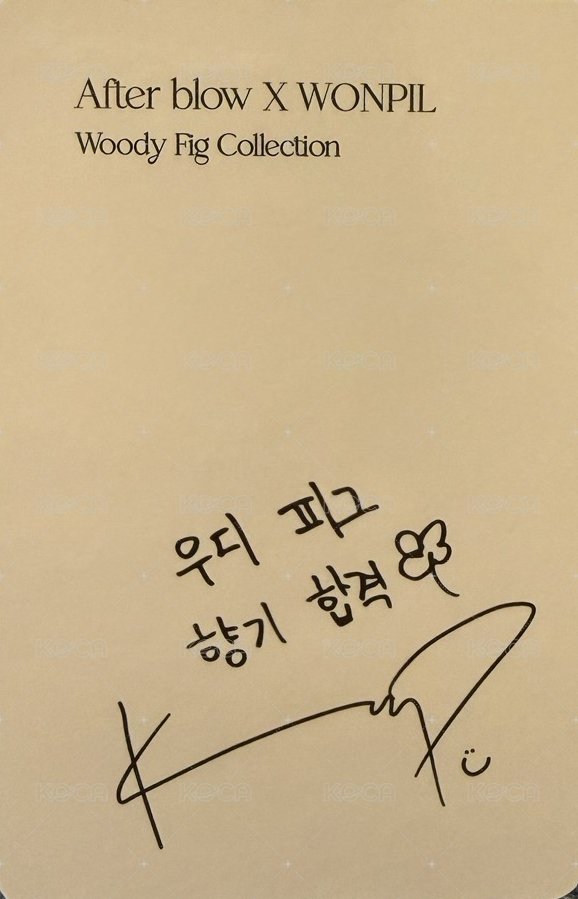 After blow X WONPIL
Woody Fig Collection
우디 피그
향기 합격